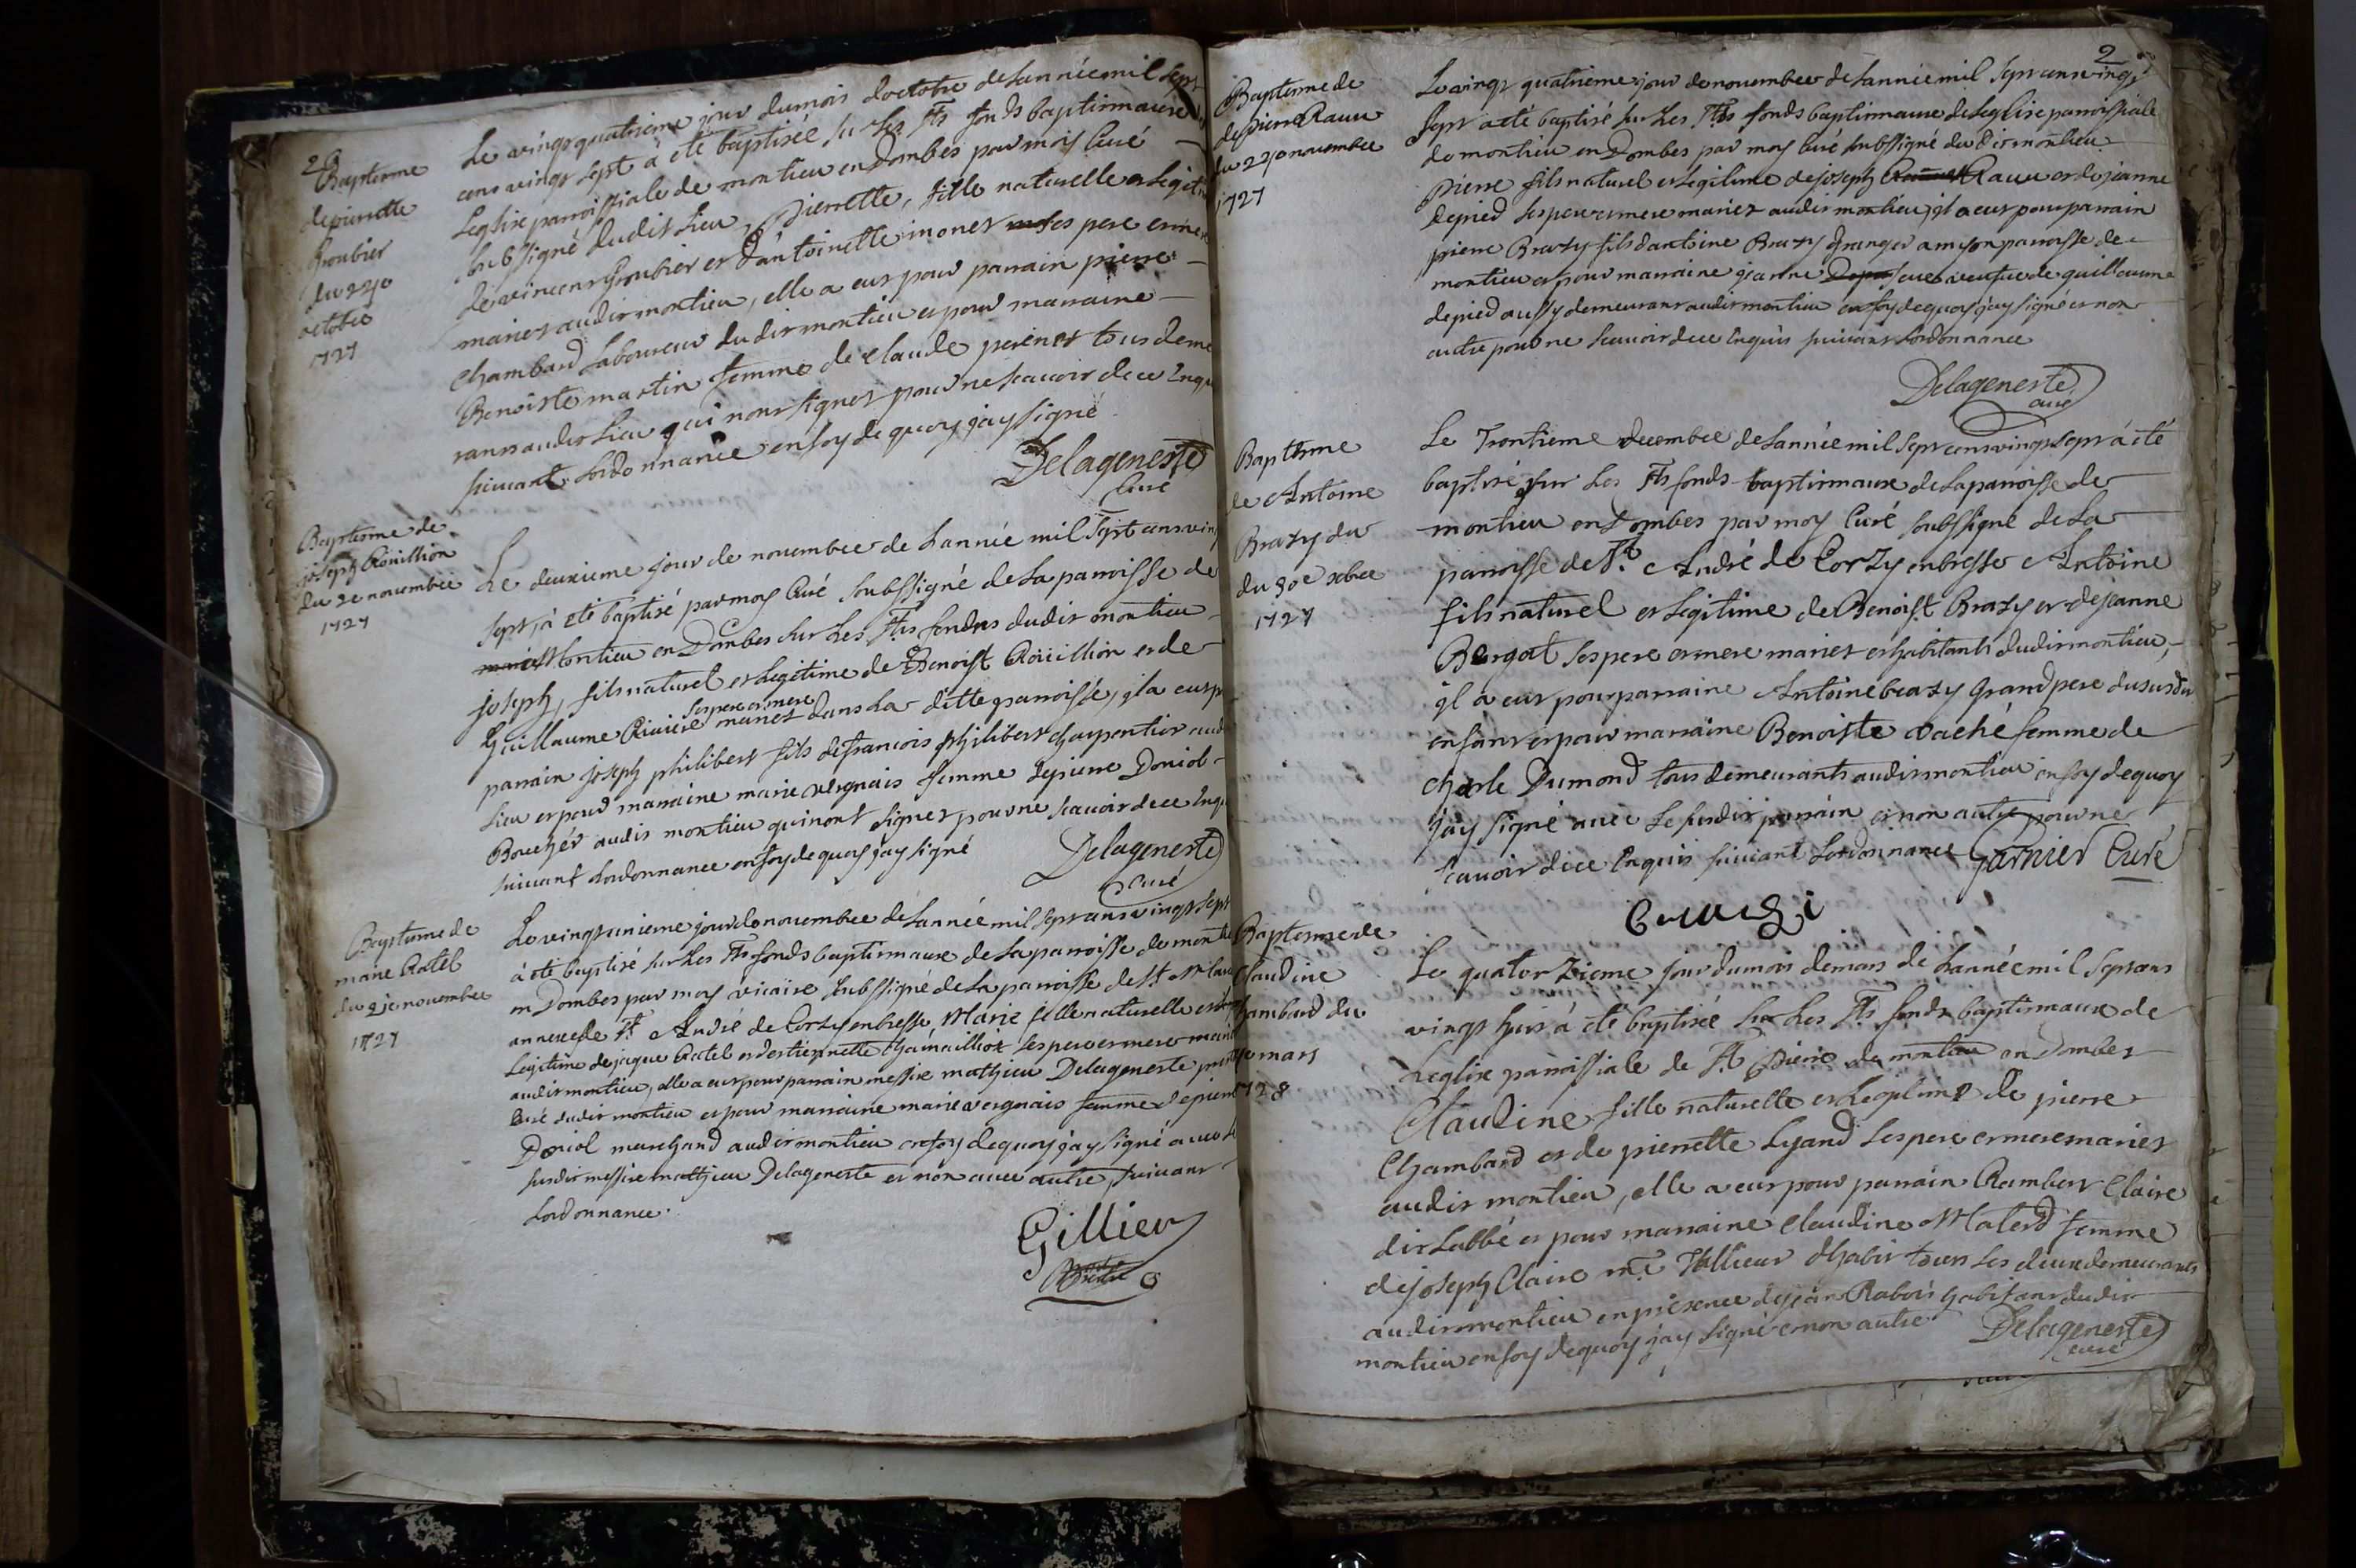 2
Baptesme
de pierrette
Groubier
du 24e
octobre
1727
Le vingt quatrieme jour du mois d'octobre de Lannée mil sept
cens vingt sept à eté baptisée sur Les Sts fonds baptismaux de
Leglise parroissiale de montieu en Dombes par moy Curé
Soubsigné dudit Lieu, Pierrette, fille naturelle et Legitime
de vincent Groubier et d'antoinette monet ses pere et mere
mariez audit montieu, elle a eut pour parrain pierre
Chambard Laboureur dudit montieu et pour marraine
Benoiste martin femme de Claude perinet tous demeu
rants audit Lieu qui n'ont signez pour ne scavoir de ce Enquis
suivant Lordonnance en foy de quoy j'ay signé
Delageneste
Curé
Baptesme de
joseph Roüillion
du 2e novembre
1727
Le deuxieme jour de novembre de Lannée mil sept cens vingt
sept, à eté baptisé par moy Curé soubsigné de La parroisse de
Montieu en Dombes sur Les Sts fonds dudit montieu
joseph, fils naturel et Legitime de Benoist Roüillion et de
Guillaume Riviere ses pere et mere mariez dans La ditte parroisse, il a eut pr
parrain joseph philibert fils de francois philibert charpentier audit
Lieu et pour marraine marie vergnais femme de pierre Doriol
Boucher audit montieu qui n'ont signez pour ne scavoir de ce Enquis
suivant Lordonnance en foy de quoy j'ay signé
Delageneste
Curé
Baptesme de
marie Ratel
du 21e novembre
1727
Le vingt unieme jour de novembre de Lannée mil sept cens vingt sept
à eté baptisé sur Les Sts fonds baptismaux de La parroisse de montieu
en Dombes par moy vicaire soubsigné de La parroisse de St
annexe de St André de Corzy en bresse, Marie fille naturelle et
Legitime de jaque Ratel et d'estiennette ses pere et mere mariez
audit montieu, elle a eut pour parrain messire mathieu Delageneste
Curé dudit montieu et pour marraine marie vergnais femme de pierre
Doriol marchand audit montieu en foy de quoy j'ay signé avec Le
susdit messire mathieu Delageneste et non avec autre suivant
Lordonnance.
Gillier
2
Baptesme de
de pierre Raux
du novembre
1727
Le vingt quatrieme jour de novembre de Lannée mil sept cens vingt
sept a eté baptisé sur Les Sts fonds baptismaux de Leglise parroissiale
de montieu en Dombes par moy Curé soubsigné dudit montieu
pierre fils naturel et Legitime de joseph Raux et de jeanne
depied ses pere et mere mariez audit montieu, il a eut pour parrain
pierre Brazy fils d'antoine Brazy Granger a parroisse de
montieu et pour marraine jeanne veufve de guillaume
depied aussy demeurant audit montieu en foy de quoy j'ay signé et non
autre pour ne scavoir de ce Enquis suivant Lordonnance
Delageneste
curé
Baptesme
de Antoine
Brazy du
du 30e xbre
1727
Le Trentieme decembre de Lannée mil sept cens vingt sept à eté
baptisé sur Les Sts fonds baptismaux de La parroisse de
montieu en Dombes par moy Curé soubsigné de La
parroisse de St. André de Corzy en bresse Antoine
fils naturel et Legitime de Benoist Brazy et de jeanne
Bergat ses pere et mere mariez et habitants dudit montieu,
il a eut pour parraine Antoine brazy Grand pere du susdit
enfant et pour marraine Benoiste vaché femme de
Charle Dumond tous demeurants audit montieu en foy de quoy
j'ay signé avec Le susdit parrain et non autre pour ne
scavoir de ce Enquis suivant Lordonnance Garnier Curé
Baptesme de
Claudine
Chambard du
mars
1728
Le quatorzieme jour du mois de mars de Lannée mil sept cens
vingt huit à eté baptisée sur Les Sts fonds baptismaux de
Leglise parroissiale de St Pierre de montieu en Dombes
Claudine fille naturelle et Legitime de pierre
Chambard et de pierrette Lyand ses pere et mere mariez
audit montieu, elle a eut pour parrain Rambert Claire
dit Labbé et pour marraine Claudine Materd femme
de joseph Claire me Tallieur d'habit tous Les deux demeurants
audit montieu en presence de jean Rabois habitant dudit
montieu en foy de quoy j'ay signé et non autre
Delageneste
curé